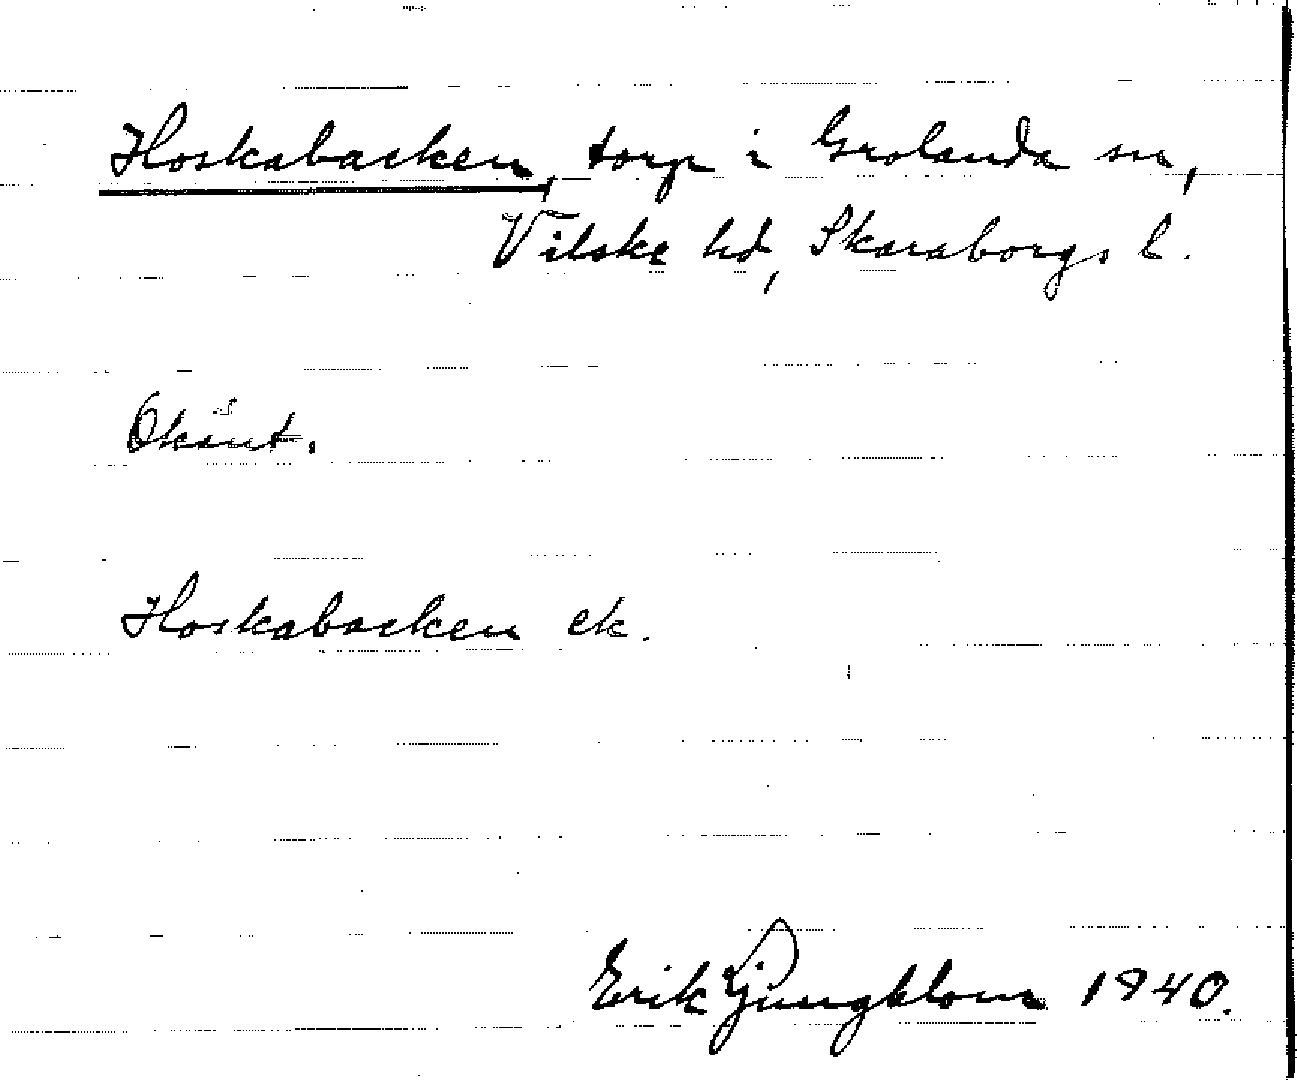 Hoskabacken, torp i Grolanda sn,
Vilske hd, Skaraborgs l.
Okänt.
Hoskabacken ek.
Erik Ljungblom 1940.